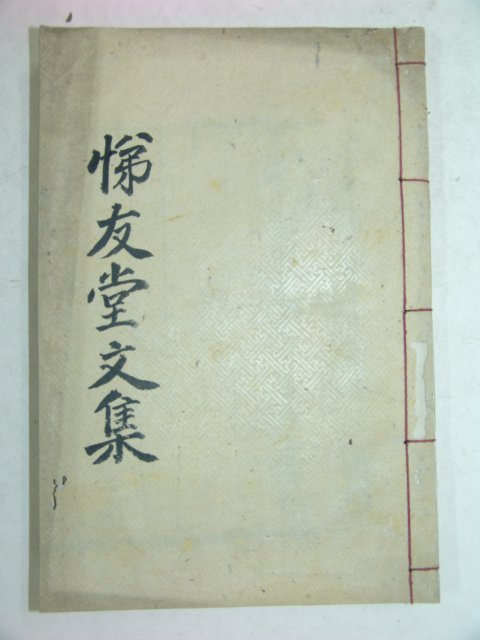 悌友堂文集